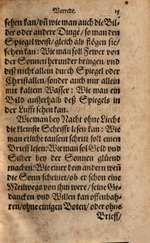 Vorrede.
sehen kan/ vñ wie man auch die Bil-
der oder andere Dinge/ so man den
Spiegel weist/ gleich als flögen sie/
sehen kan: Wie man soll Fewer von
der Sonnen herunder bringen, vnd
diß nicht allein durch Spiegel oder
Christallen/ sonder auch nur allein
mit kaltem Wasser: Wie man ein
Bild ausserhalb deß Spiegels in
der Lufft sehen kan.
Wie man bey Nacht ohne Liecht
die kleinste Schrifft lesen kan: Wie
man etliche tausent schritt soll einen
Brieff lesen: Wie man sol Gold vnd
Silber bey der Sonnen glüend
machen: Wie einer dem andern weil
die Sonn scheinet/ ob er schon eine
Meilwegs von ihm were/ seine Ge-
dancken vnd Willen kan offenbah-
ren/ ohne einigen Boten/ oder ohn
Brieff/